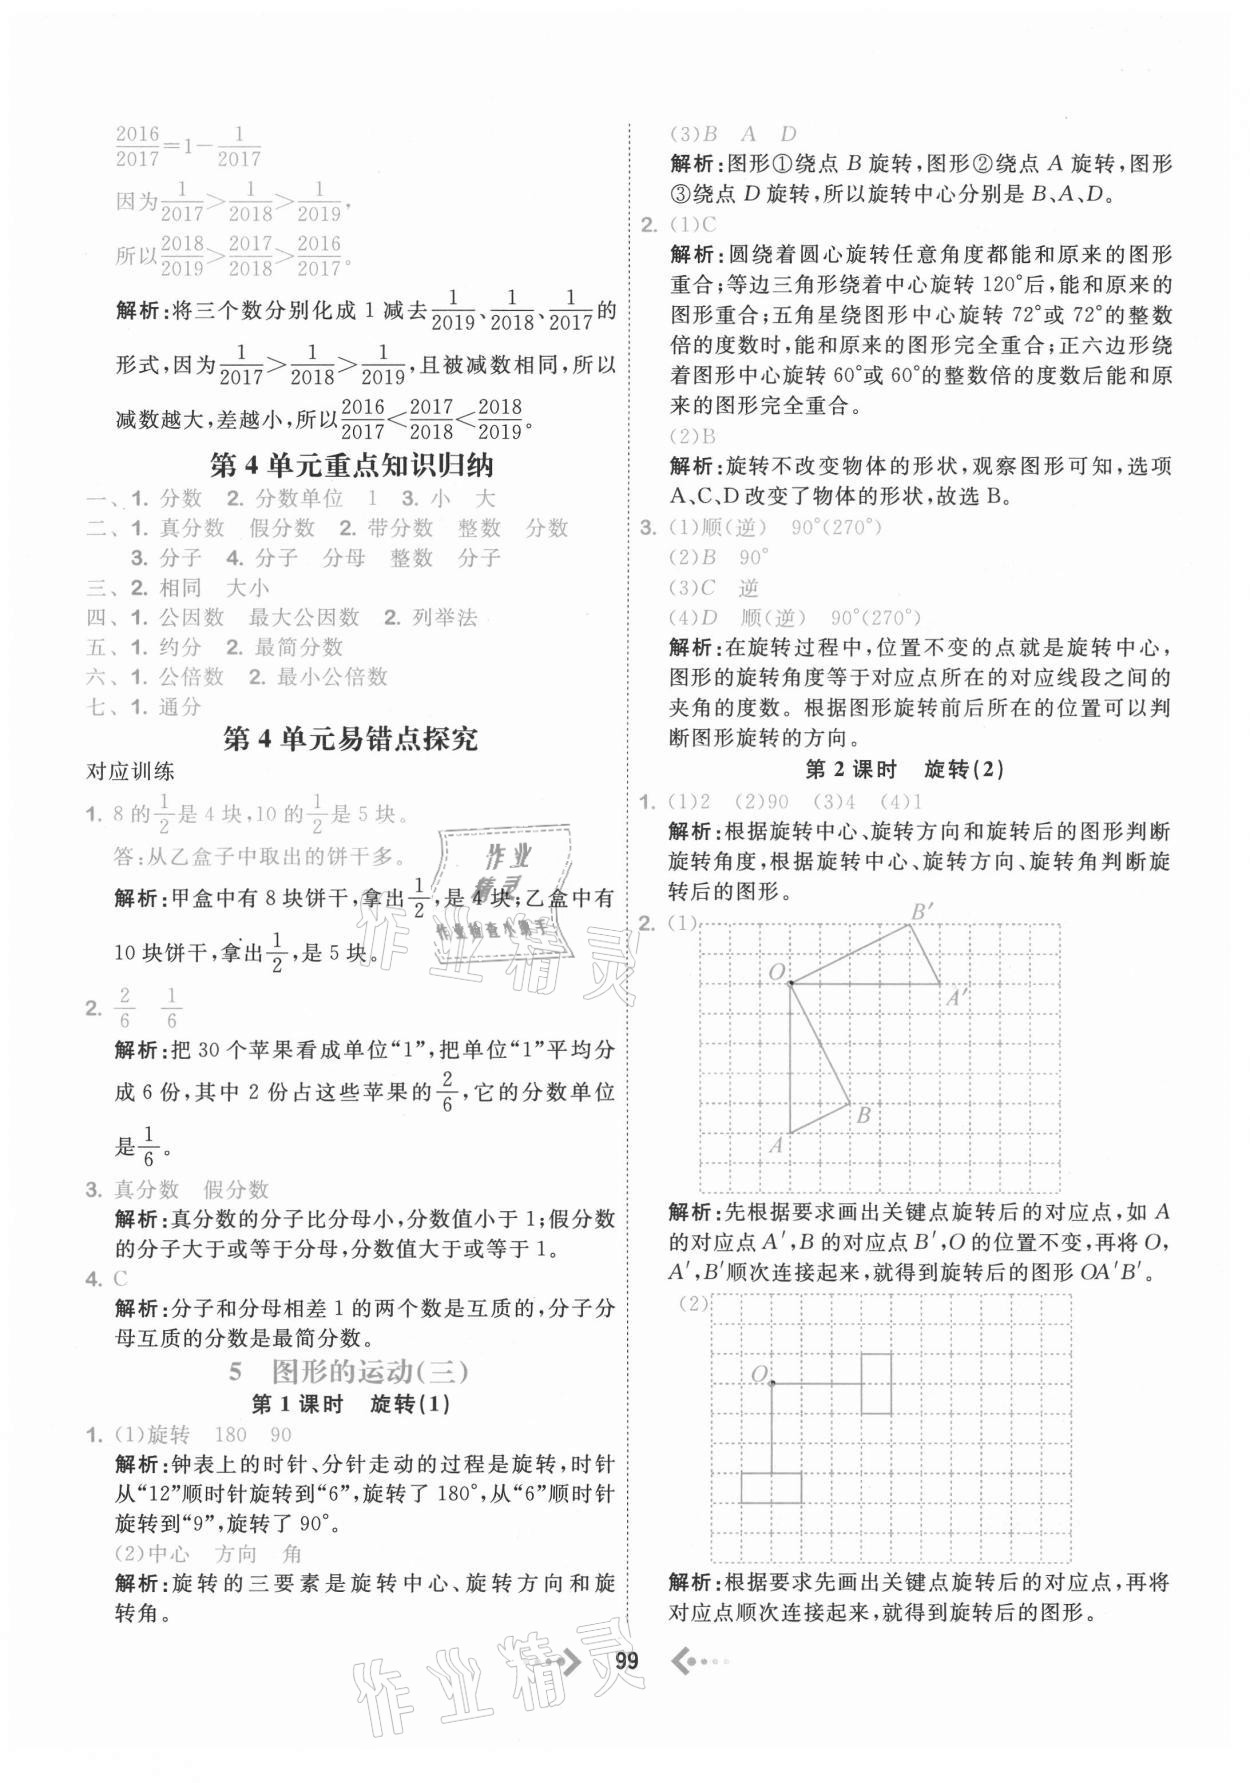 2016/2017=1-1/2017
因为1/2017>1/2018>1/2019,
所以2018/2019>2017/2018>2016/2017。
解析:将三个数分别化成1减去1/2019、1/2018、1/2017的
形式,因为1/2017>1/2018>1/2019,且被减数相同,所以
减数越大,差越小,所以2016/2017<2017/2018<2018/2019。
第4单元重点知识归纳
一、1. 分数 2. 分数单位 1 3. 小 大
二、1. 真分数 假分数 2. 带分数 整数 分数
3. 分子 4. 分子 分母 整数 分子
三、2. 相同 大小
四、1. 公因数 最大公因数 2. 列举法
五、1. 约分 2. 最简分数
六、1. 公倍数 2. 最小公倍数
七、1. 通分
第4单元易错点探究
对应训练
1. 8的1/2是4块,10的1/2是5块。
答:从乙盒子中取出的饼干多。
解析:甲盒中有8块饼干,拿出1/2,是4块;乙盒中有
10块饼干,拿出1/2,是5块。
2. 2/6 1/6
解析:把30个苹果看成单位“1”,把单位“1”平均分
成6份,其中2份占这些苹果的2/6,它的分数单位
是1/6。
3. 真分数 假分数
解析:真分数的分子比分母小,分数值小于1;假分数
的分子大于或等于分母,分数值大于或等于1。
4. C
解析:分子和分母相差1的两个数是互质的,分子分
母互质的分数是最简分数。
5 图形的运动(三)
第1课时 旋转(1)
1. (1)旋转 180 90
解析:钟表上的时针、分针走动的过程是旋转,时针
从“12”顺时针旋转到“6”,旋转了180°,从“6”顺时针
旋转到“9”,旋转了90°。
(2)中心 方向 角
解析:旋转的三要素是旋转中心、旋转方向和旋
转角。
(3)B A D
解析:图形①绕点B旋转,图形②绕点A旋转,图形
③绕点D旋转,所以旋转中心分别是B、A、D。
2. (1)C
解析:圆绕着圆心旋转任意角度都能和原来的图形
重合;等边三角形绕着中心旋转120°后,能和原来的
图形重合;五角星绕图形中心旋转72°或72°的整数
倍的度数时,能和原来的图形完全重合;正六边形绕
着图形中心旋转60°或60°的整数倍的度数后能和原
来的图形完全重合。
(2)B
解析:旋转不改变物体的形状,观察图形可知,选项
A、C、D改变了物体的形状,故选B。
3. (1)顺(逆) 90°(270°)
(2)B 90°
(3)C 逆
(4)D 顺(逆) 90°(270°)
解析:在旋转过程中,位置不变的点就是旋转中心,
图形的旋转角度等于对应点所在的对应线段之间的
夹角的度数。根据图形旋转前后所在的位置可以判
断图形旋转的方向。
第2课时 旋转(2)
1. (1)2 (2)90 (3)4 (4)1
解析:根据旋转中心、旋转方向和旋转后的图形判断
旋转角度,根据旋转中心、旋转方向、旋转角判断旋
转后的图形。
2. (1)
B′
O
A′
B
A
解析:先根据要求画出关键点旋转后的对应点,如A
的对应点A′,B的对应点B′,O的位置不变,再将O,
A′,B′顺次连接起来,就得到旋转后的图形OA′B′。
(2)
O
解析:根据要求先画出关键点旋转后的对应点,再将
对应点顺次连接起来,就得到旋转后的图形。
99
作业
精灵
作业检查小助手
作业精灵
作业精灵